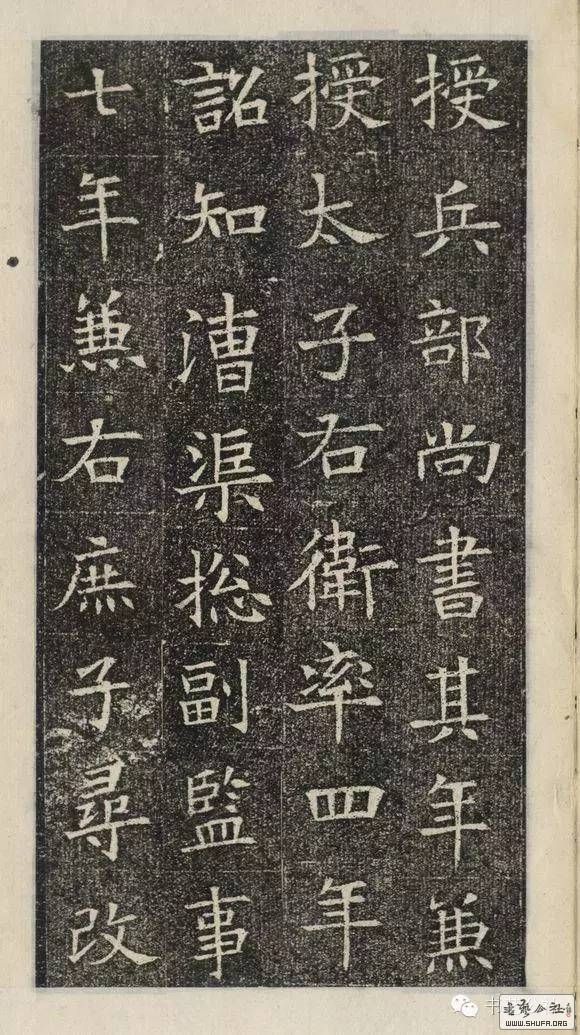 授兵部尚書其年兼
授太子右衛率四年
詔知漕渠捴副監事
七年兼右庶子尋改
WWW.SHUFA.ORG